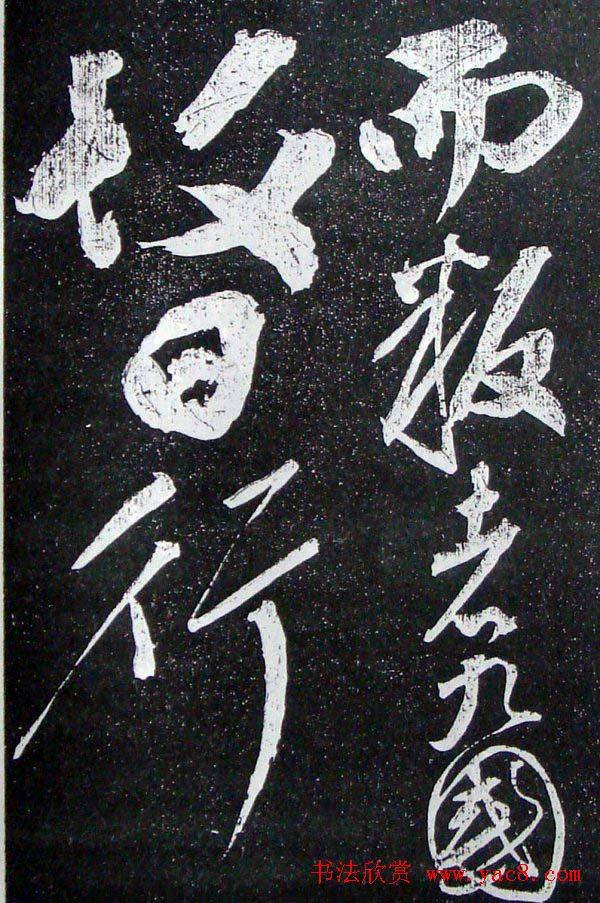 而叛者九國
故曰行
书法欣赏 www.yac8.com